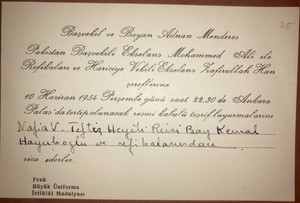 25
Başvekil ve Bayan Adnan Menderes
Pakistan Başvekili Ekselans Mohammed Ali ile
Refikaları ve Hariciye Vekili Ekselans Zafirullah Han
şereflerine
10 Haziran 1954 Perşembe günü saat 22.30 da Ankara
Palas'da tertip olunacak resmi kabulü teşrif buyurmalarını
Nafia V. Teftiş Heyeti Reisi Bay Kemal
Hayırlıoğlu ve refikalarından
rica ederler.
Frak
Büyük Üniforma
İstiklâl Madalyası